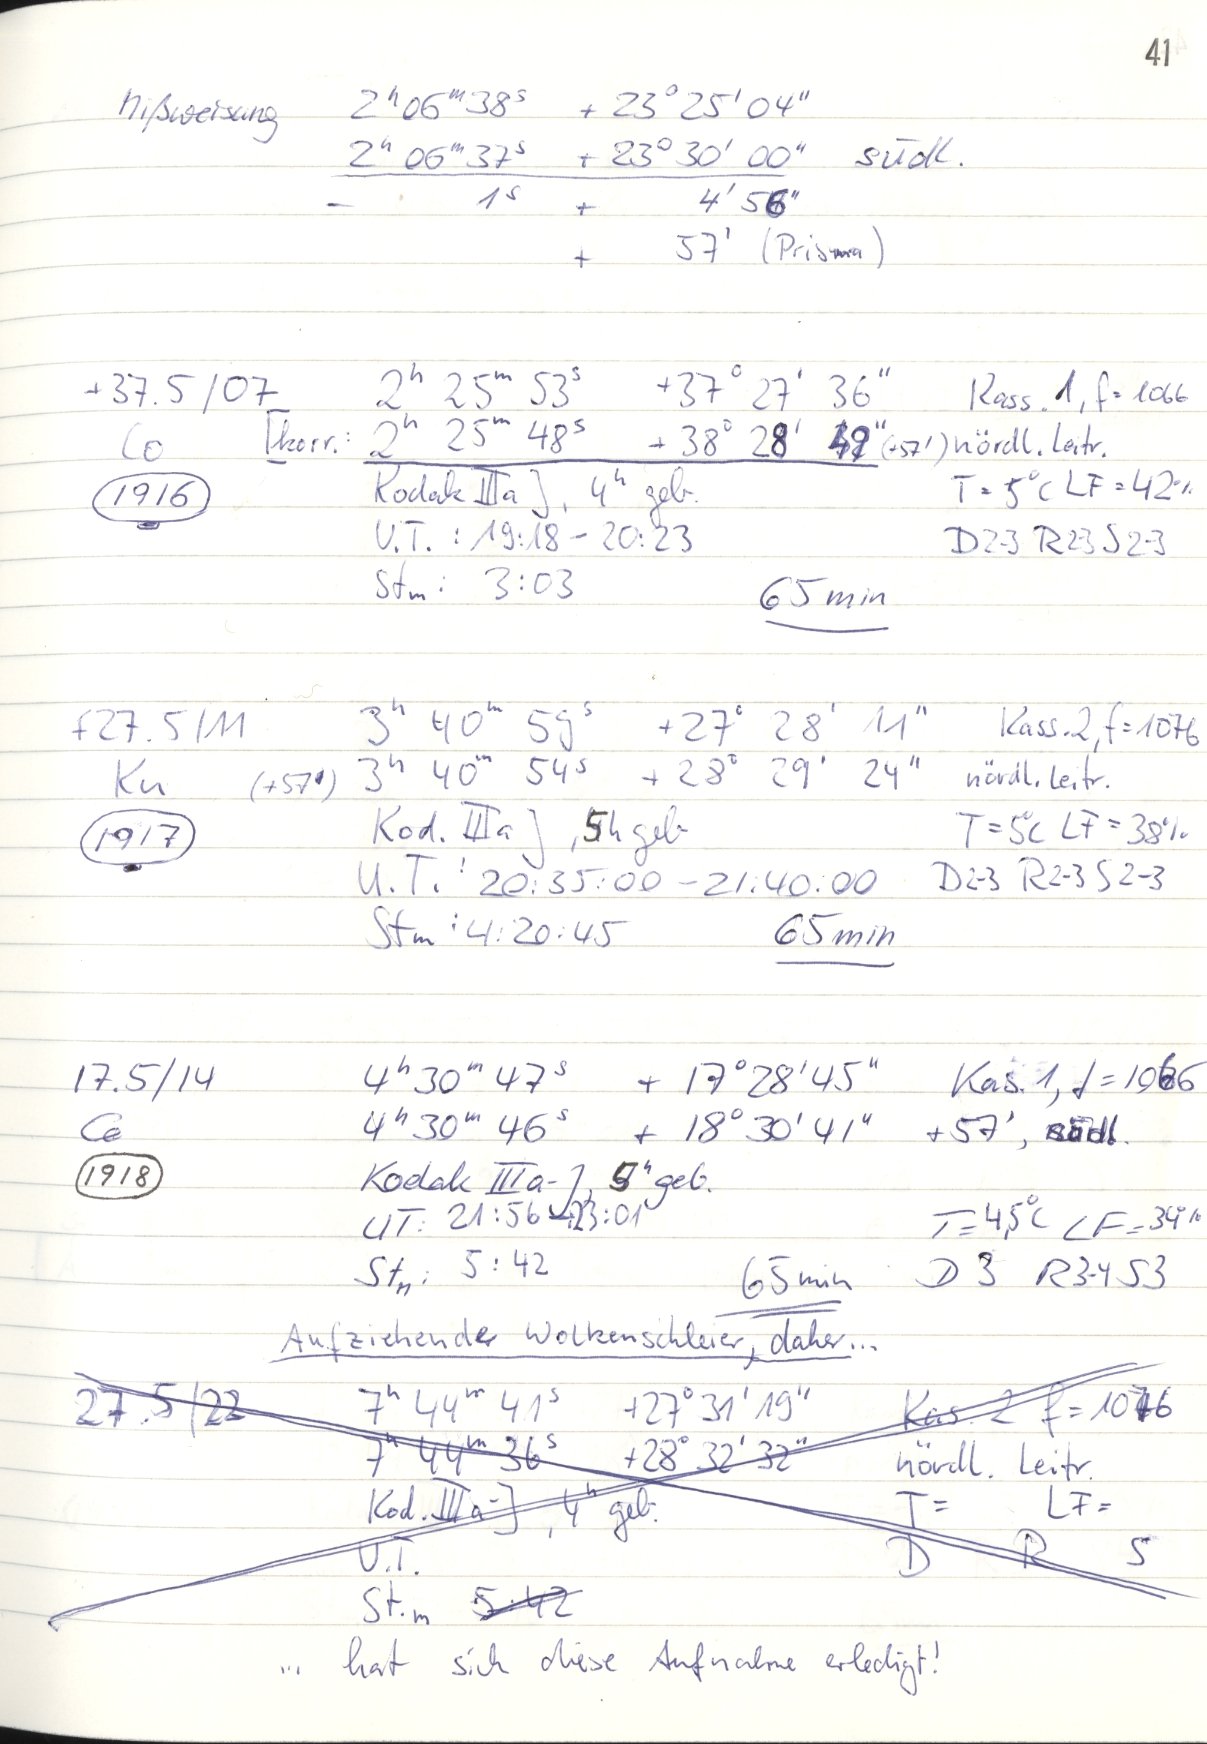 41
Mißweisung 2ʰ06ᵐ38ˢ + 23° 25' 04"
2ʰ 06ᵐ 37ˢ + 23° 30' 00" südl.
- 1ˢ + 4' 56"
+ 57' (Prisma)
+37.5/07 2ʰ 25ᵐ 53ˢ +37° 27' 36" Kass. 1, f=1066
Co [korr.: 2ʰ 25ᵐ 48ˢ +38° 28' 49" (+57') nördl. Leitr.
1916 Kodak IIIaJ, 4ʰ geb. T=5°C LF=42%
U.T.: 19:18 - 20:23 D2-3 R2-3 S2-3
Stm: 3:03 65min
+27.5/11 3ʰ 40ᵐ 59ˢ +27° 28' 11" Kass. 2, f=1076
Ku (+57') 3ʰ 40ᵐ 54ˢ +28° 29' 24" nördl. Leitr.
1917 Kod. IIIaJ, 5h geb T=5°C LF=38%
U.T.: 20:35:00 - 21:40:00 D2-3 R2-3 S2-3
Stm: 4:20:45 65min
17.5/14 4ʰ30ᵐ47ˢ + 17°28'45" Kas. 1, f=1066
Co 4ʰ30ᵐ46ˢ + 18°30'41" +57', südl.
1918 Kodak IIIa-J, 5ʰ geb.
UT: 21:56-23:01 T=4,5°C LF=34%
Stm: 5:42 65min D3 R3-4 S3
Aufziehender Wolkenschleier, daher...
27.5/22 7ʰ 44ᵐ 41ˢ +27°31'19" Kas. 2 f=1076
7ʰ 44ᵐ 36ˢ +28° 32' 32" nördl. Leitr.
Kod. IIIa-J, 4ʰ geb. T= LF=
U.T. D R S
St.m 5:42
... hat sich diese Aufnahme erledigt!